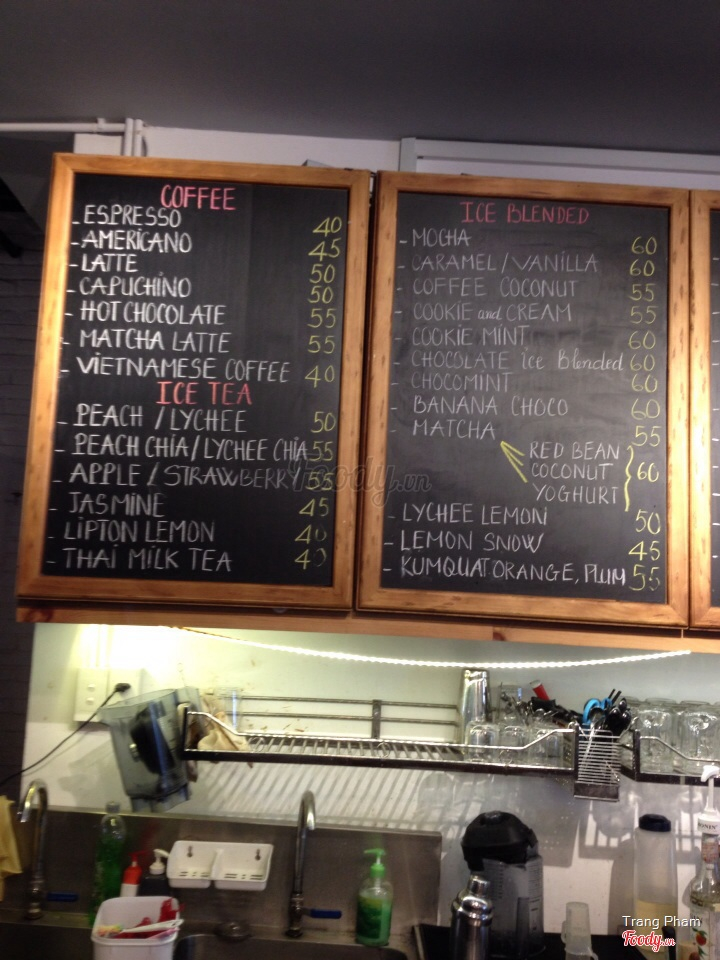 COFFEE
- ESPRESSO 40
- AMERICANO 45
- LATTE 50
- CAPUCHINO 50
- HOT CHOCOLATE 55
- MATCHA LATTE 55
- VIETNAMESE COFFEE 40
ICE TEA
- PEACH / LYCHEE 50
- PEACH CHIA / LYCHEE CHIA 55
- APPLE / STRAWBERRY 55
- JASMINE 45
- LIPTON LEMON 40
- THAI MILK TEA 40
ICE BLENDED
- MOCHA 60
- CARAMEL / VANILLA 60
- COFFEE COCONUT 55
- COOKIE and CREAM 55
- COOKIE MINT 60
- CHOCOLATE ice Blended 60
- CHOCOMINT 60
- BANANA CHOCO 60
- MATCHA 55
RED BEAN
COCONUT 60
YOGHURT
- LYCHEE LEMON 50
- LEMON SNOW 45
- KUMQUAT ORANGE, PLUM 55
foody.vn
Trang Pham
Foody.vn